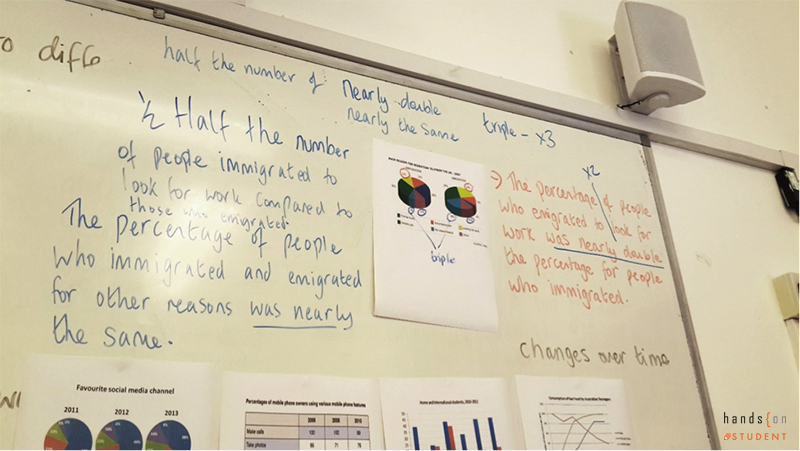 to diff
half the number of
nearly double
nearly the same
triple – x3
½ Half the number
of people immigrated to
look for work compared to
those who emigrated.
The percentage of people
who immigrated and emigrated
for other reasons was nearly
the same.
triple
x2
→ The percentage of people
who emigrated to look for
work was nearly double
the percentage for people
who immigrated.
changes over time
Favourite social media channel
2011 2012 2013
Percentages of mobile phone owners using various mobile phone features
2006 2008 2010
Make calls 100 100 99
Take photos 66 71 76
Home and International students, 2010-2012
hands{on
STUDENT